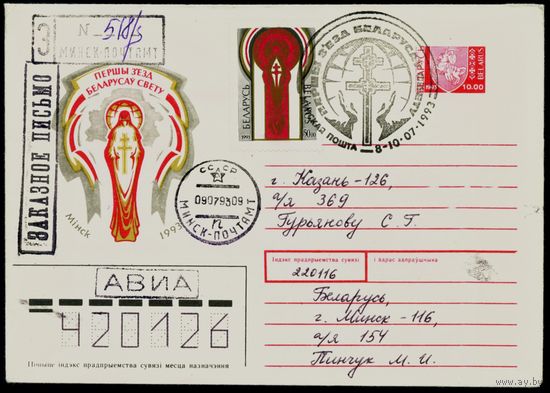 N 518/з
МИНСК-ПОЧТАМТ
ЗАКАЗНОЕ ПИСЬМО
ПЕРШЫ З'ЕЗД
БЕЛАРУСАЎ СВЕТУ
Мінск 1993
БЕЛАРУСЬ
1993
BELARUS
50.00
ПЕРШЫ З'ЕЗД БЕЛАРУСАЎ
ПОШТА
8-10·07·1993
BELARUS
1993 10.00
СССР
09079309
МИНСК-ПОЧТАМТ
г. Казань-126,
а/я 369
Гурьянову С. Г.
Індэкс прадпрыемства сувязі і адрас адпраўшчыка
220116
Беларусь,
г. Минск-116,
а/я 154
Пинчук М. И.
АВИА
420126
Пішыце індэкс прадпрыемства сувязі месца назначэння
www.ay.by